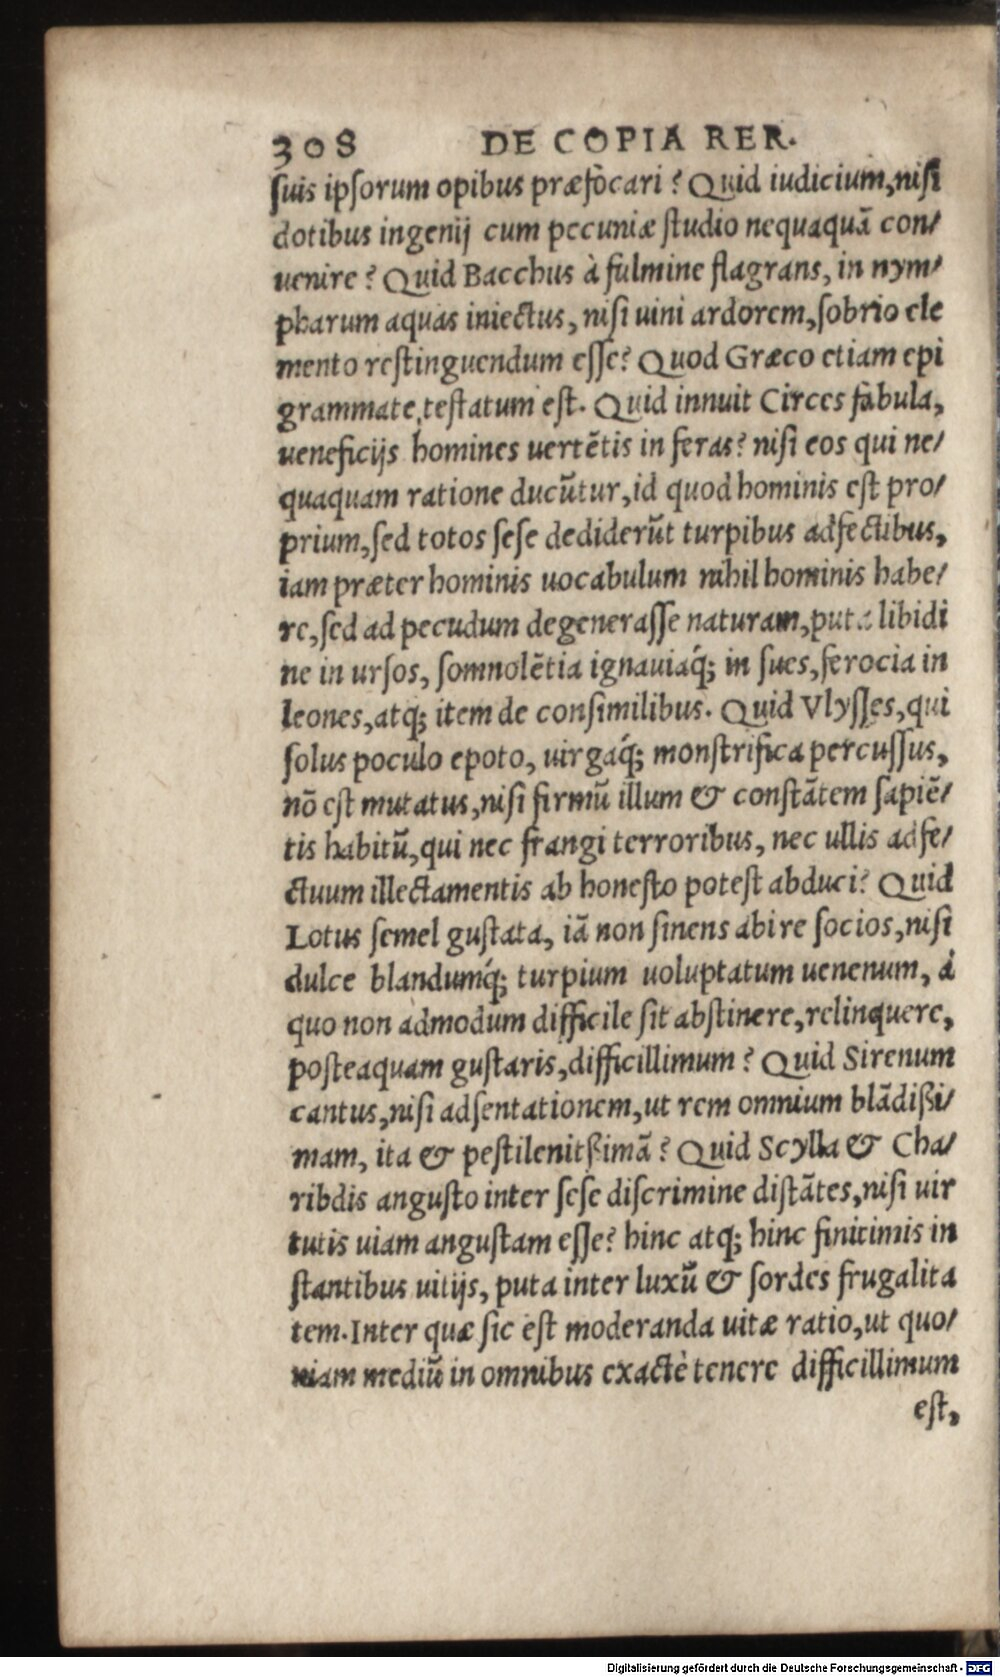 308 DE COPIA RER.
ſuis ipſorum opibus præfòcari? Quid iudicium, niſi
dotibus ingenij cum pecuniæ ſtudio nequaquā con/
uenire? Quid Bacchus à fulmine flagrans, in nym/
pharum aquas iniectus, niſi uini ardorem, ſobrio ele
mento reſtinguendum eſſe? Quod Græco etiam epi
grammate teſtatum eſt. Quid innuit Circes fabula,
ueneficijs homines uertētis in feras? niſi eos qui ne/
quaquam ratione ducūtur, id quod hominis eſt pro/
prium, ſed totos ſeſe dediderūt turpibus adfectibus,
iam præter hominis uocabulum nihil hominis habe/
re, ſed ad pecudum degeneraſſe naturam, puta libidi
ne in urſos, ſomnolētia ignauiaq́; in ſues, ferocia in
leones, atq; item de conſimilibus. Quid Vlyſſes, qui
ſolus poculo epoto, uirgaq́; monſtrifica percuſſus,
nō eſt mutatus, niſi firmū illum & conſtātem ſapiē/
tis habitū, qui nec frangi terroribus, nec ullis adfe/
ctuum illectamentis ab honeſto poteſt abduci? Quid
Lotus ſemel guſtata, iā non ſinens abire ſocios, niſi
dulce blandumq́; turpium uoluptatum uenenum, à
quo non admodum difficile ſit abſtinere, relinquere,
poſteaquam guſtaris, difficillimum? Quid Sirenum
cantus, niſi adſentationem, ut rem omnium blādißi/
mam, ita & peſtilenitßimā? Quid Scylla & Cha/
ribdis anguſto inter ſeſe diſcrimine diſtātes, niſi uir
tutis uiam anguſtam eſſe? hinc atq; hinc finitimis in
ſtantibus uitijs, puta inter luxū & ſordes frugalita
tem. Inter quæ ſic eſt moderanda uitæ ratio, ut quo/
niam mediū in omnibus exactè tenere difficillimum
eſt,
Digitalisierung gefördert durch die Deutsche Forschungsgemeinschaft - DFG